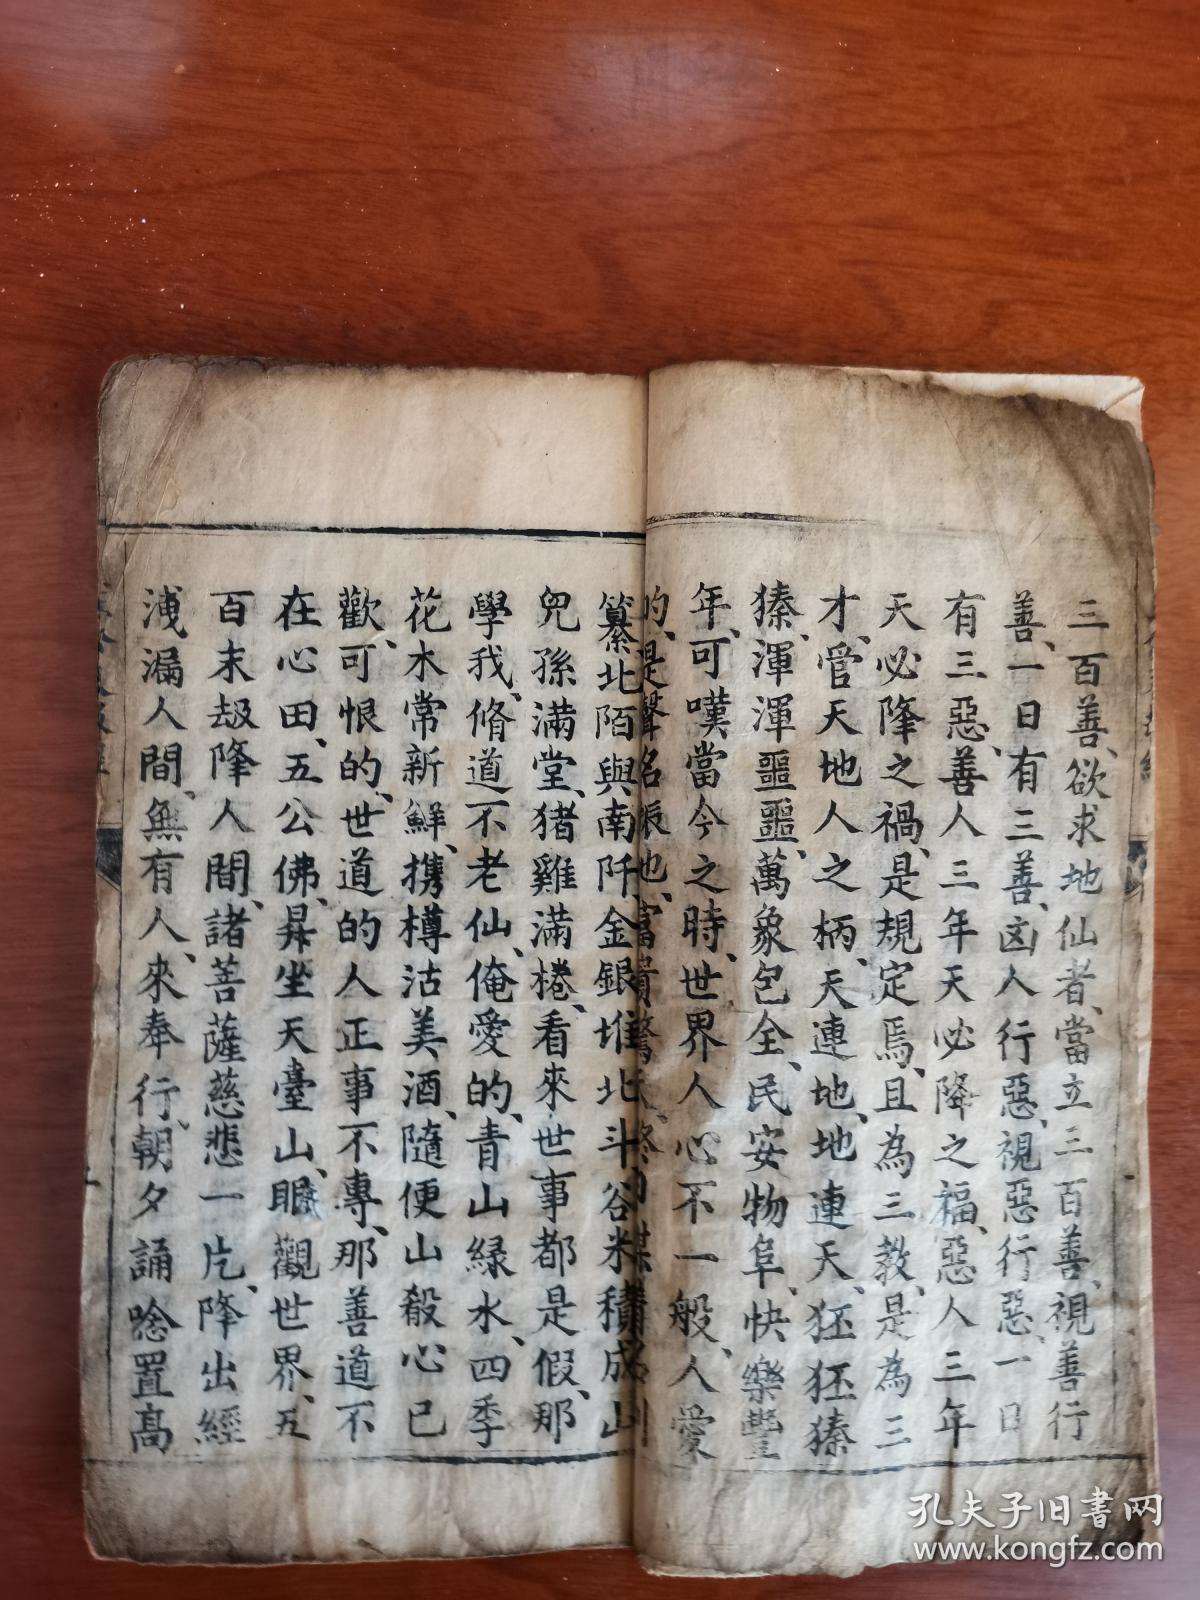 三百善、欲求地仙者、當立三百善、視善行
善、一日有三善、凶人行惡、視惡行惡、一日
有三惡、善人三年天必降之福、惡人三年
天必降之禍、是規定焉、且為三教、是為三
才、管天地人之柄、天連地、地連天、狉狉獉
獉、渾渾噩噩、萬象包全、民安物阜、快樂豐
年、可嘆當今之時、世界人心不一般、人愛
的、是聲名振地、富
纂北陌與南阡金銀堆北斗谷米積成山
兒孫滿堂、猪雞滿棬、看來世事都是假、那
學我、脩道不老仙、俺愛的、青山緑水、四季
花木常新鮮、携樽沽美酒、隨便山殽心已
歡、可恨的、世道的人正事不專、那善道不
在心田、五公佛、昇坐天臺山、眼觀世界、五
百末刼降人間、諸菩薩慈悲一片、降出經
洩漏人間、無有人、來奉行、朝夕誦唸置高
孔夫子旧書网
www.kongfz.com